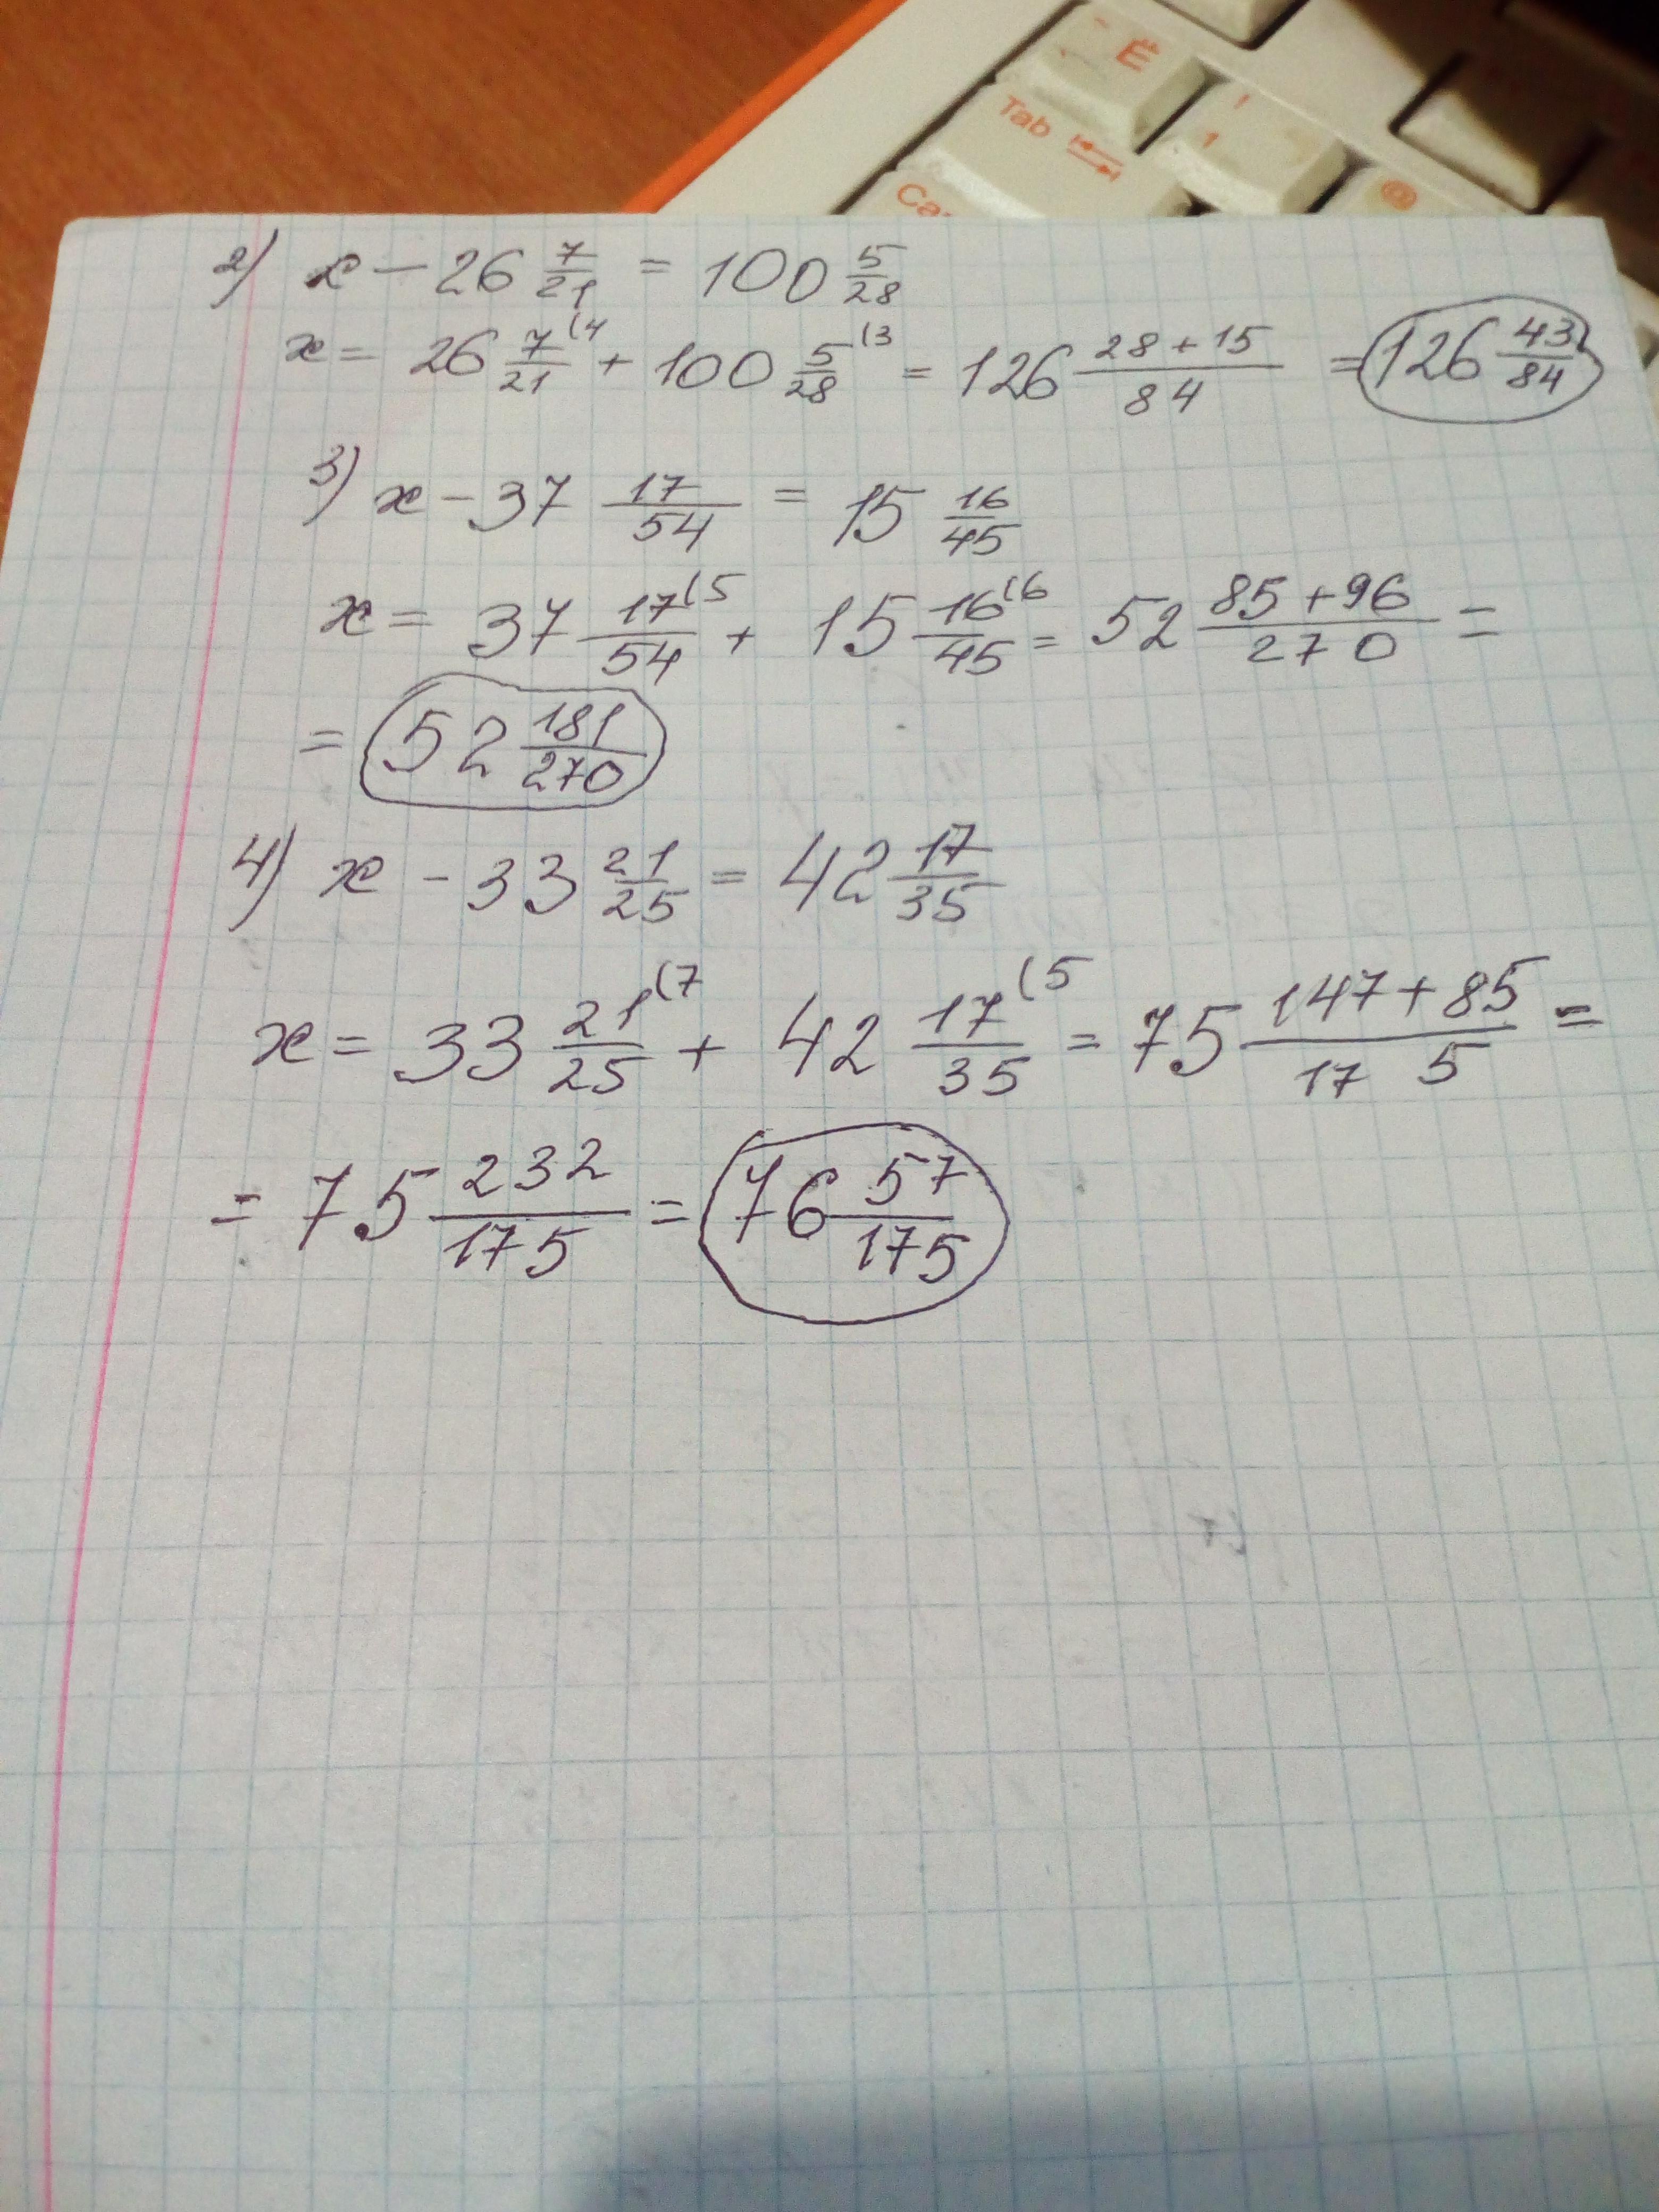 Ё
! 1
Tab
@
Ca
2) x - 26 7/21 = 100 5/28
x = 26 7/21 (4 + 100 5/28 (3 = 126 (28+15)/84 = 126 43/84
3) x - 37 17/54 = 15 16/45
x = 37 17/54 (5 + 15 16/45 (6 = 52 (85+96)/270 =
= 52 181/270
4) x - 33 21/25 = 42 17/35
x = 33 21/25 (7 + 42 17/35 (5 = 75 (147+85)/175 =
= 75 232/175 = 76 57/175